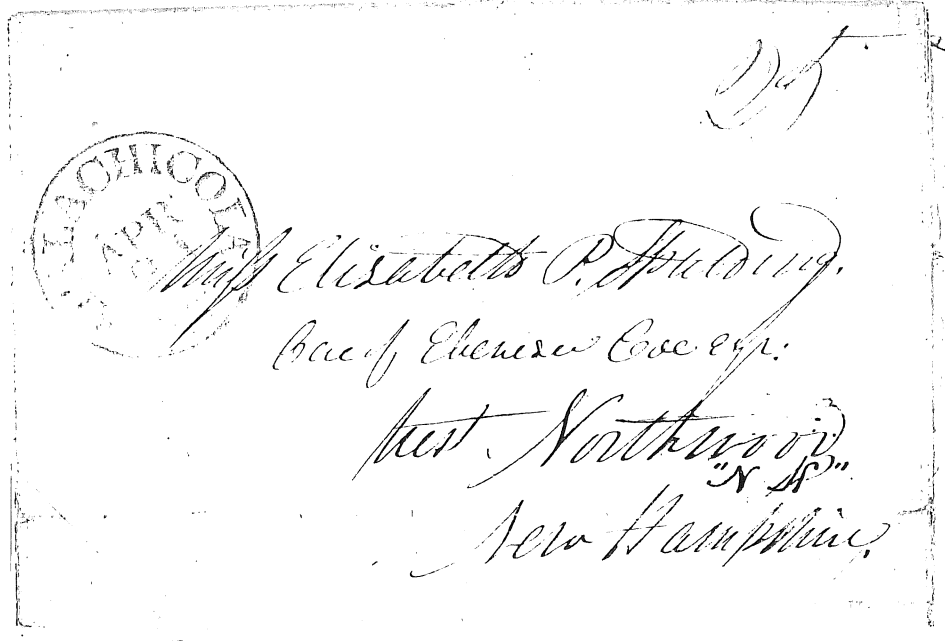 LACHICOLA
APR
Miss Elizabeth P. Spalding.
Care of Ebenezer Coe esqr:
West. Northwood
"N H"
New Hampshire.